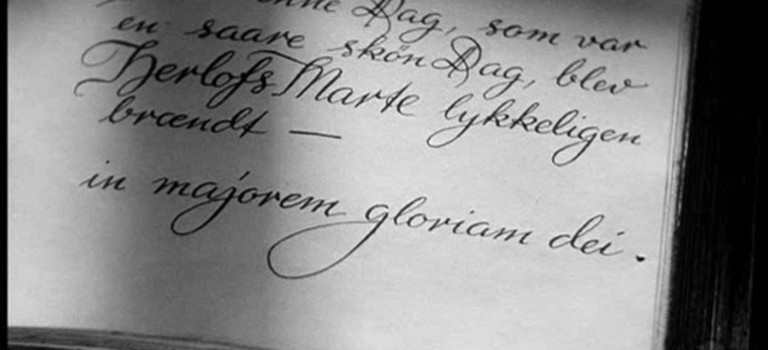 Dag, som var
en saare skøn Dag, blev
Herlofs Marte lykkeligen
brændt —
in majorem gloriam dei.